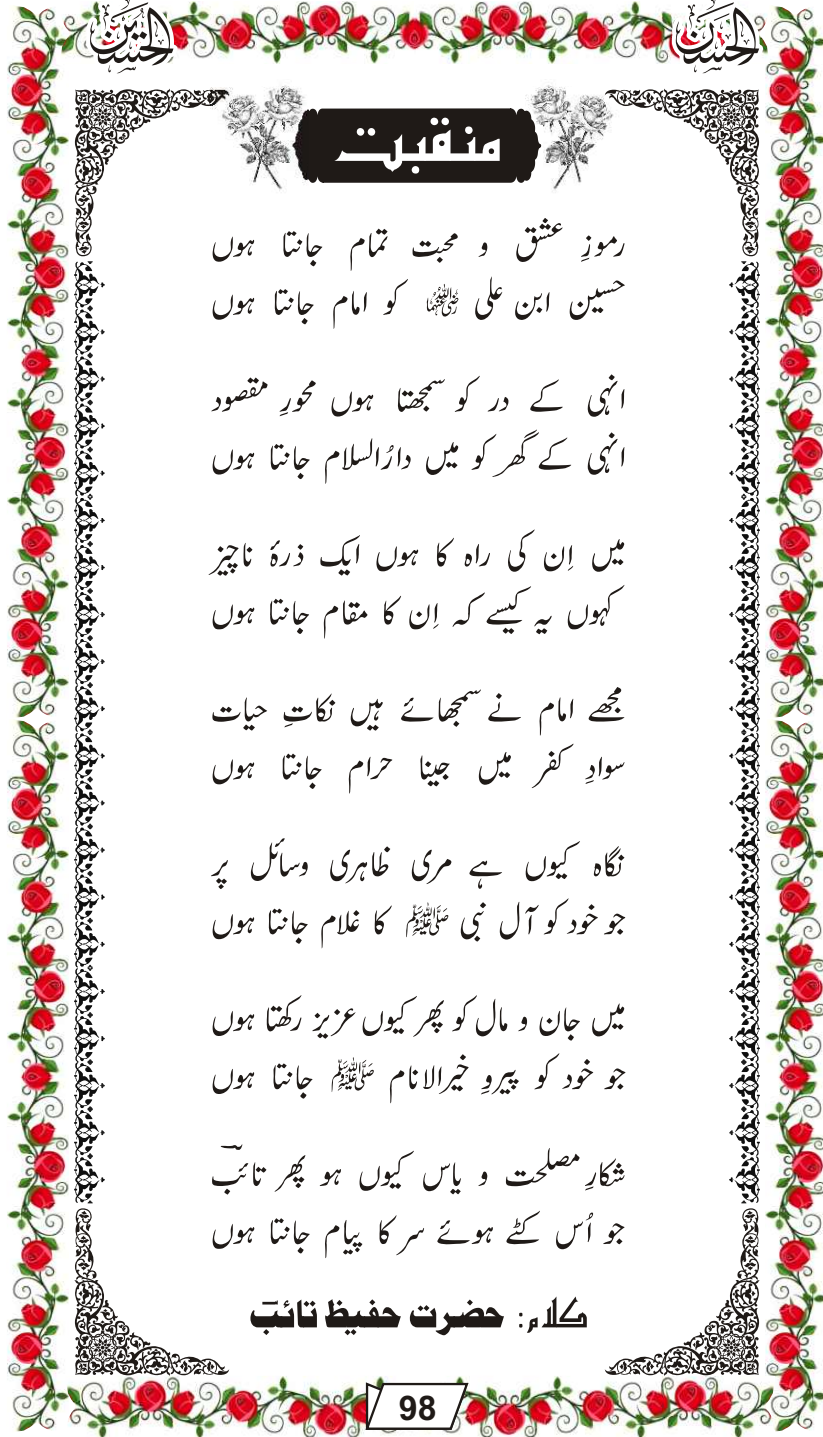 الحسین
الحسن
منقبت
رموزِ عشق و محبت تمام جانتا ہوں
حسین ابن علی رضی اللہ عنہما کو امام جانتا ہوں
انہی کے در کو سمجھتا ہوں محورِ مقصود
انہی کے گھر کو میں دارُالسلام جانتا ہوں
میں اِن کی راہ کا ہوں ایک ذرۂ ناچیز
کہوں یہ کیسے کہ اِن کا مقام جانتا ہوں
مجھے امام نے سمجھائے ہیں نکاتِ حیات
سوادِ کفر میں جینا حرام جانتا ہوں
نگاہ کیوں ہے مری ظاہری وسائل پر
جو خود کو آل نبی ﷺ کا غلام جانتا ہوں
میں جان و مال کو پھر کیوں عزیز رکھتا ہوں
جو خود کو پیروِ خیرالانام ﷺ جانتا ہوں
شکارِ مصلحت و یاس کیوں ہو پھر تائبؔ
جو اُس کٹے ہوئے سر کا پیام جانتا ہوں
کلام: حضرت حفیظ تائبؔ
98